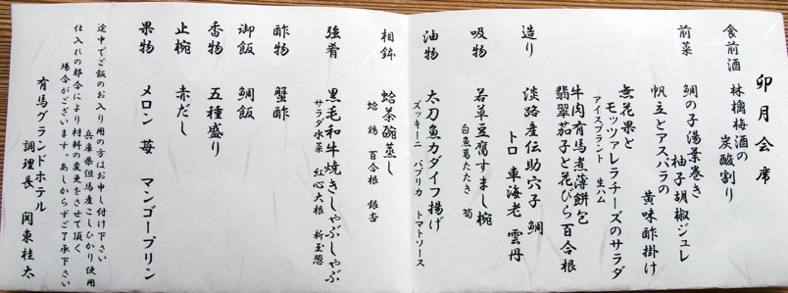 卯月会席
食前酒 林檎梅酒の
炭酸割り
前菜 鯛の子湯葉巻き
柚子胡椒ジュレ
帆立とアスパラの
黄味酢掛け
無花果と
モッツァレラチーズのサラダ
アイスプラント 生ハム
牛肉有馬煮薄餅包
翡翠茄子と花びら百合根
造り 淡路産伝助穴子 鯛
トロ 車海老 雲丹
吸物 若草豆腐すまし椀
白魚葛たたき 筍
油物 太刀魚カダイフ揚げ
ズッキーニ パプリカ トマトソース
相鉢 蛤茶碗蒸し
蛤 鶏 百合根 銀杏
強肴 黒毛和牛焼きしゃぶしゃぶ
サラダ水菜 紅心大根 新玉葱
酢物 蟹酢
御飯 鯛飯
香物 五種盛り
止椀 赤だし
果物 メロン 苺 マンゴープリン
途中でご飯のお入り用の方はお申し付け下さい
兵庫県但馬産こしひかり使用
仕入れの都合により材料の変更をさせて頂く
場合がございます。あしからずご了承下さい
有馬グランドホテル
調理長 関東桂太